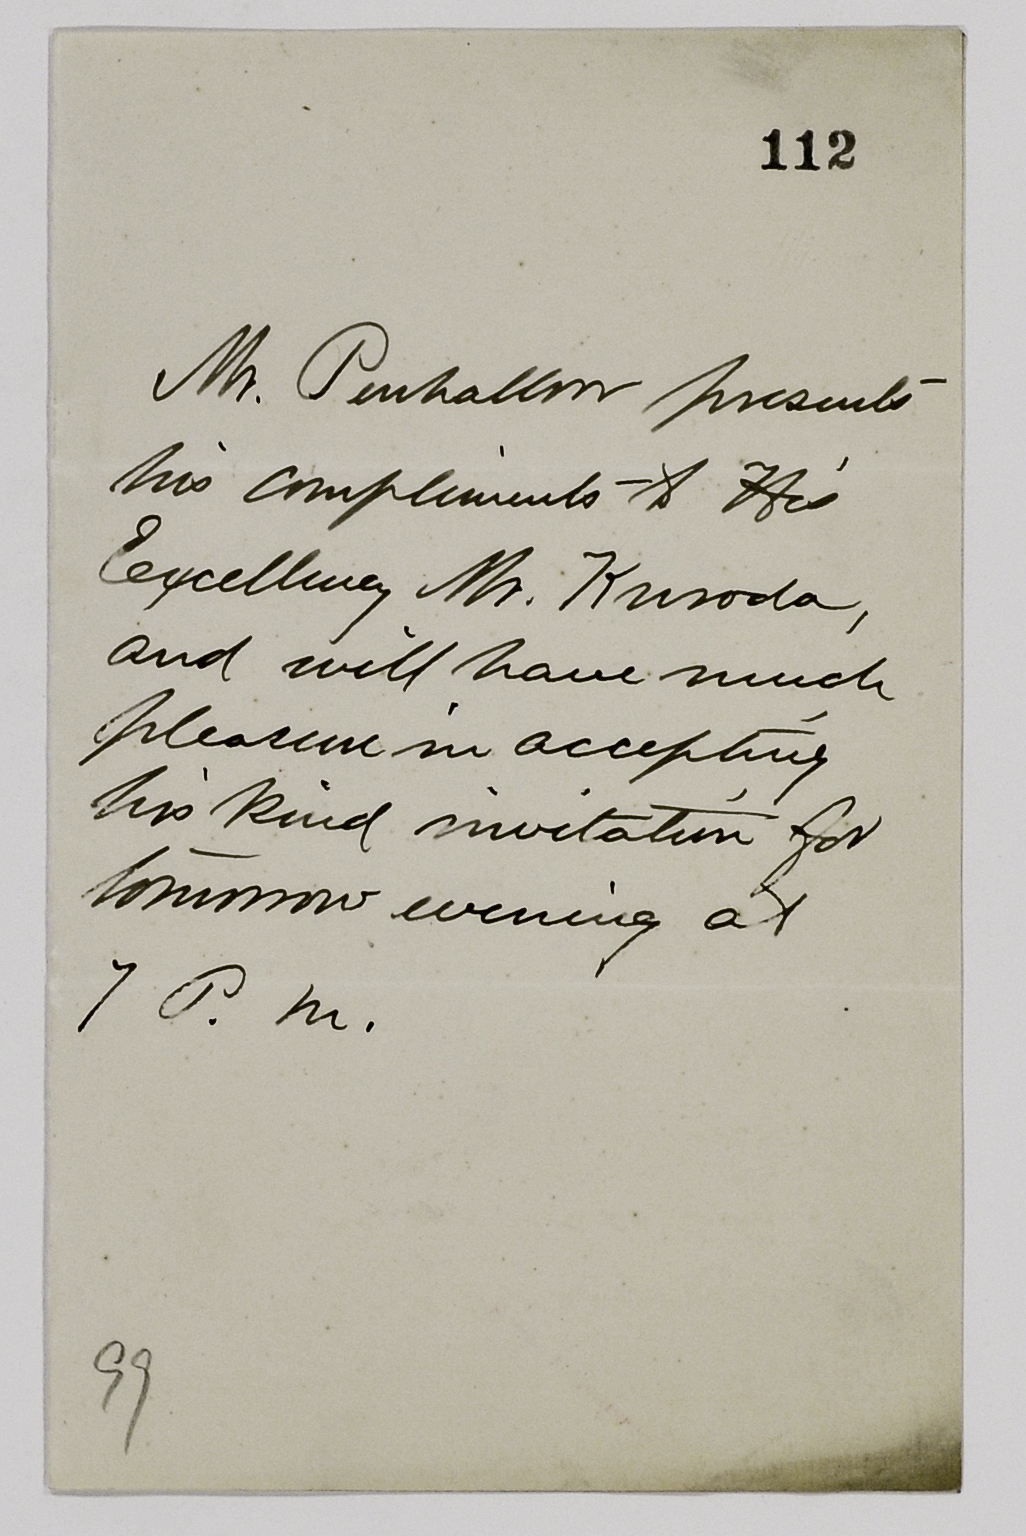 112
Mr. Penhallow presents
his compliments to His
Excellency Mr. Kuroda,
and will have much
pleasure in accepting
his kind invitation for
tomorrow evening at
7 P. M.
99